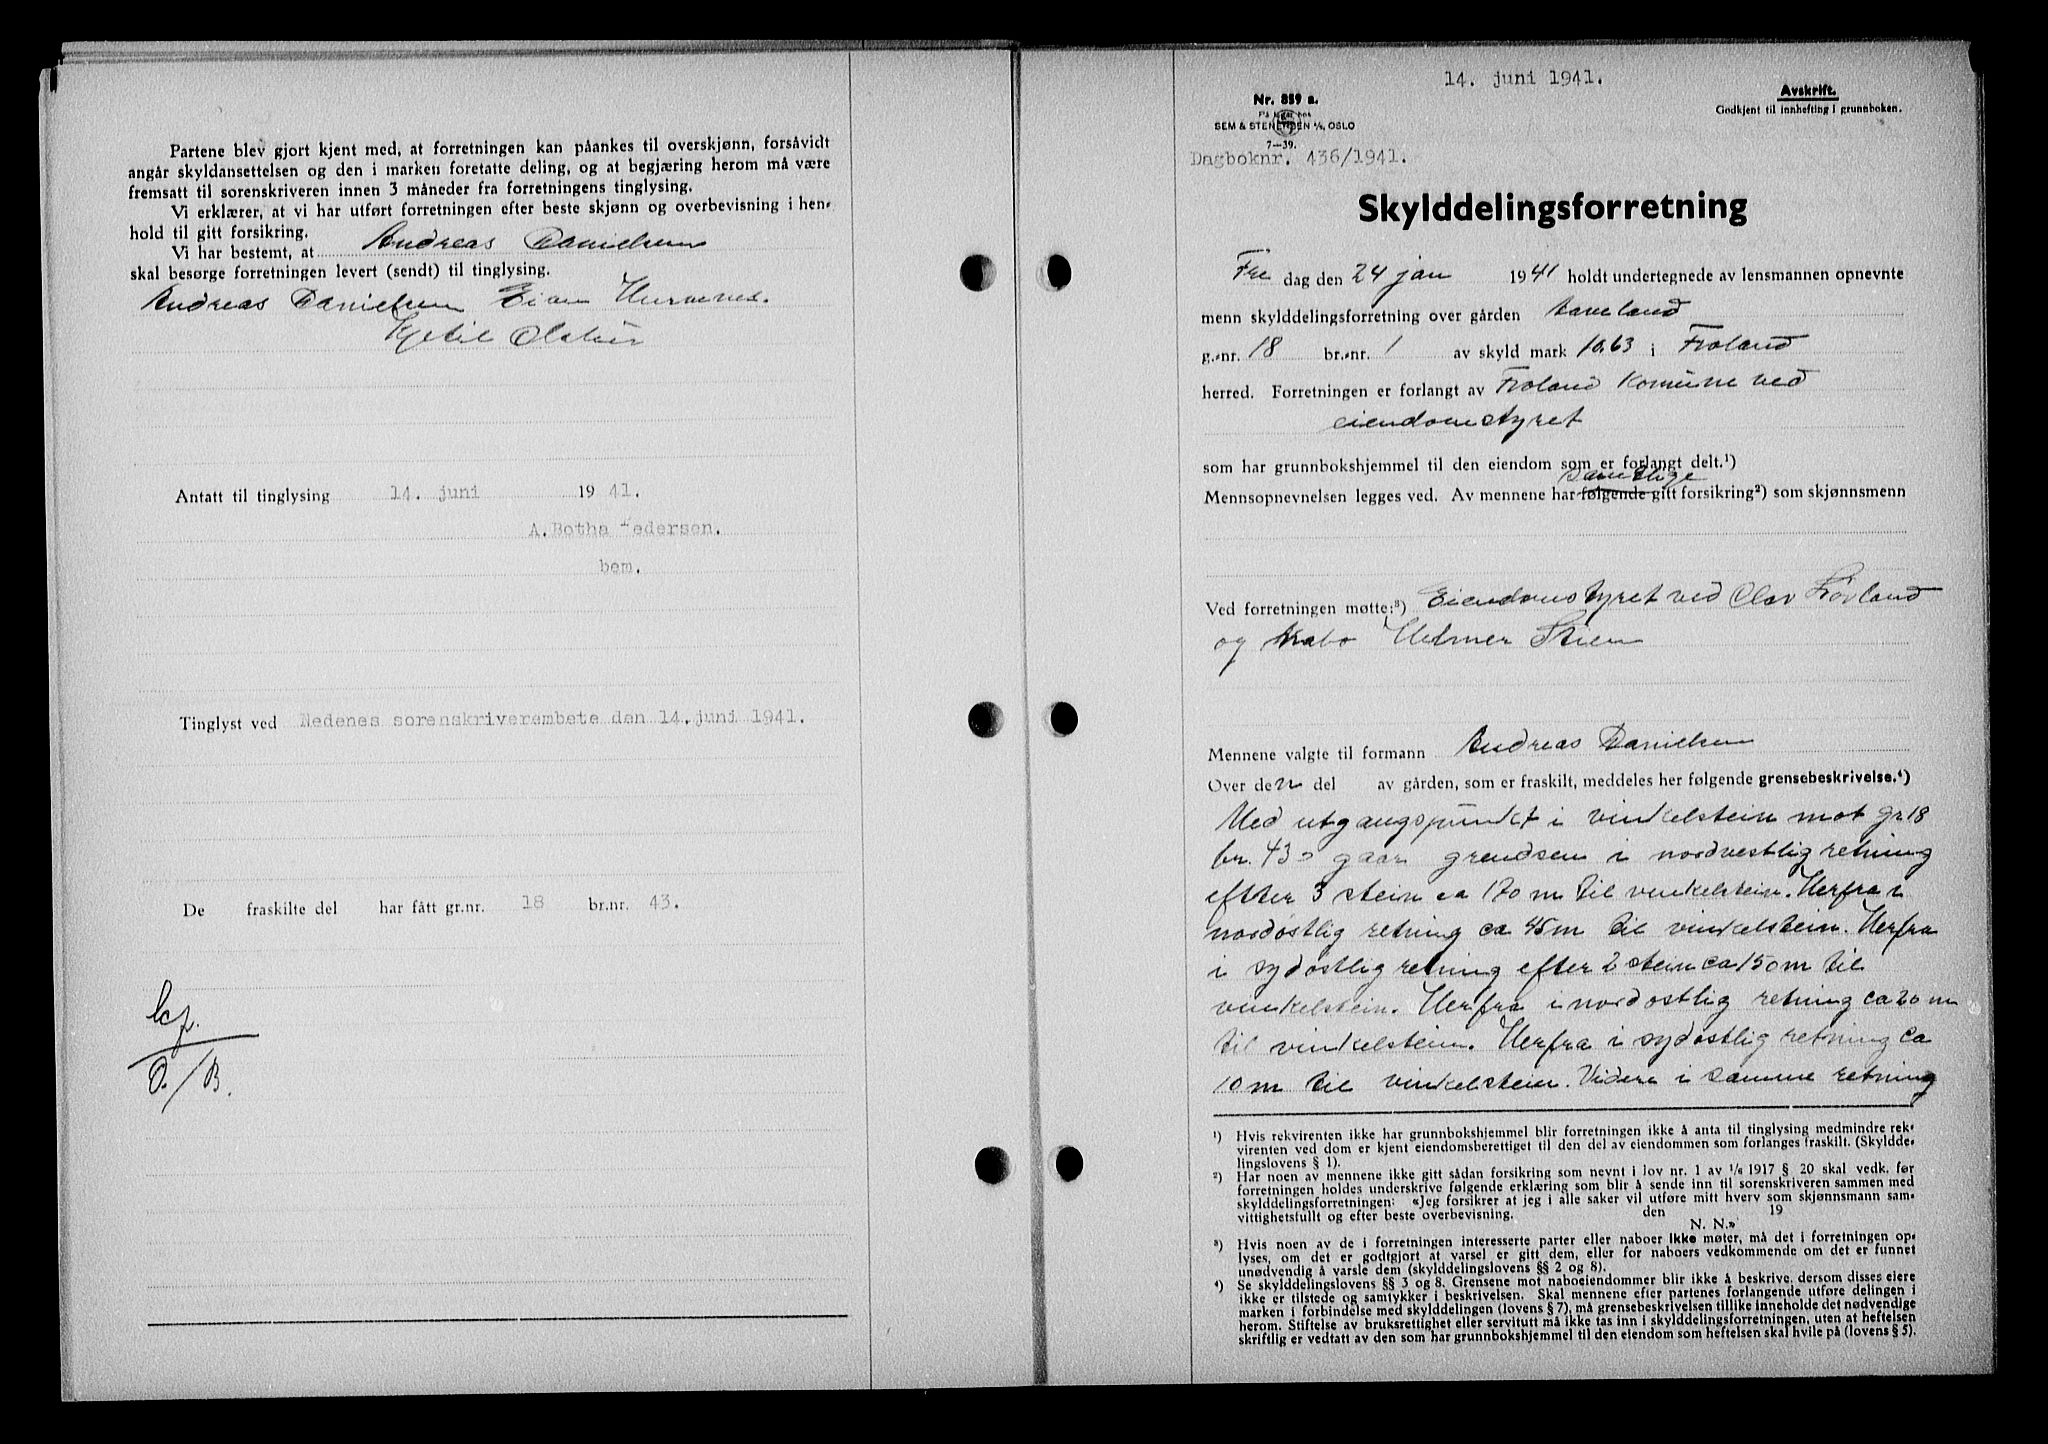 Partene blev gjort kjent med, at forretningen kan påankes til overskjønn, forsåvidt
angår skyldansettelsen og den i marken foretatte deling, og at begjæring herom må være
fremsatt til sorenskriveren innen 3 måneder fra forretningens tinglysing.
Vi erklærer, at vi har utført forretningen efter beste skjønn og overbevisning i hen-
hold til gitt forsikring.
Vi har bestemt, at Andreas Danielsen
skal besørge forretningen levert (sendt) til tinglysing.
Andreas Danielsen
Kjetil
Antatt til tinglysing 14. juni 1941.
A. Botha Pedersen.
bem.
Tinglyst ved Nedenes sorenskriverembete den 14. juni 1941.
De fraskilte del har fått gr.nr. 18 br.nr. 43.
D./B.
14. juni 1941.
Nr. 859 a.
På lager hos
SEM & STENERSEN A/S, OSLO
7—39.
Avskrift.
Godkjent til innhefting i grunnboken.
Dagboknr. 436/1941.
Skylddelingsforretning
Fre dag den 24 jan 1941 holdt undertegnede av lensmannen opnevnte
menn skylddelingsforretning over gården
g.-nr. 18 br.-nr. 1 av skyld mark 10,63 i Froland
herred. Forretningen er forlangt av Froland Komune ved
eiendomstyret
som har grunnbokshjemmel til den eiendom som er forlangt delt.¹)
samtlige
Mennsopnevnelsen legges ved. Av mennene har følgende gitt forsikring²) som skjønnsmenn
Ved forretningen møtte:³) Eiendomstyret ved Olav Førland
og Nabo Helmer Stien
Mennene valgte til formann Andreas Danielsen
Over den del av gården, som er fraskilt, meddeles her følgende grensebeskrivelse.⁴)
Med utgangspunkt i vinkelstein mot gr 18
br. 43 gaar grendsen i nordvestlig retning
efter 3 stein ca 170 m til vinkelstein. Herfra i
nordøstlig retning ca 45 m til vinkelstein. Herfra
i sydøstlig retning efter 2 stein ca 150 m til
vinkelstein. Herfra i nordøstlig retning ca 20 m
til vinkelstein. Herfra i sydøstlig retning ca
10 m til vinkelstein. Videre i samme retning
¹) Hvis rekvirenten ikke har grunnbokshjemmel blir forretningen ikke å anta til tinglysing medmindre rek-
virenten ved dom er kjent eiendomsberettiget til den del av eiendommen som forlanges fraskilt. (Skyldde-
lingslovens § 1).
²) Har noen av mennene ikke gitt sådan forsikring som nevnt i lov nr. 1 av 1/6 1917 § 20 skal vedk. før
forretningen holdes underskrive følgende erklæring som blir å sende inn til sorenskriveren sammen med
skylddelingsforretningen: «Jeg forsikrer at jeg i alle saker vil utføre mitt hverv som skjønnsmann sam-
vittighetsfullt og efter beste overbevisning. den 19
N. N.»
³) Hvis noen av de i forretningen interesserte parter eller naboer ikke møter, må det i forretningen op-
lyses, om det er godtgjort at varsel er gitt dem, eller for naboers vedkommende om det er funnet
unødvendig å varsle dem (skylddelingslovens §§ 2 og 8).
⁴) Se skylddelingslovens §§ 3 og 8. Grensene mot naboeiendommer blir ikke å beskrive, dersom disses eiere
ikke er tilstede og samtykker i beskrivelsen. Skal mennene efter partenes forlangende utføre delingen i
marken i forbindelse med skylddelingen (lovens § 7), må grensebeskrivelsen tillike inneholde det nødvendige
herom. Stiftelse av bruksrettighet eller servitutt må ikke tas inn i skylddelingsforretningen, uten at heftelsen
skriftlig er vedtatt av den som har grunnbokshjemmel til den eiendom som heftelsen skal hvile på (lovens § 5).